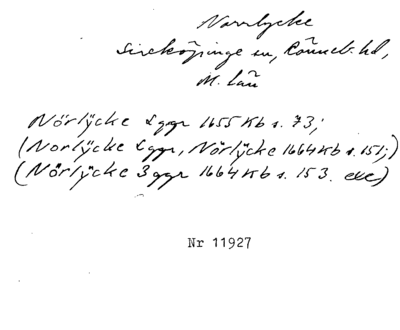 Norrlycke
Sireköpinge sn, Rönneb. hd,
M. län
Nörlÿcke 2 ggr 1655 Kb s. 73;
(Norlÿcke 2 ggr, Nörlÿcke 1664 Kb s. 151;)
(Nörlÿcke 3 ggr 1664 Kb s. 153. etc)
Nr 11927